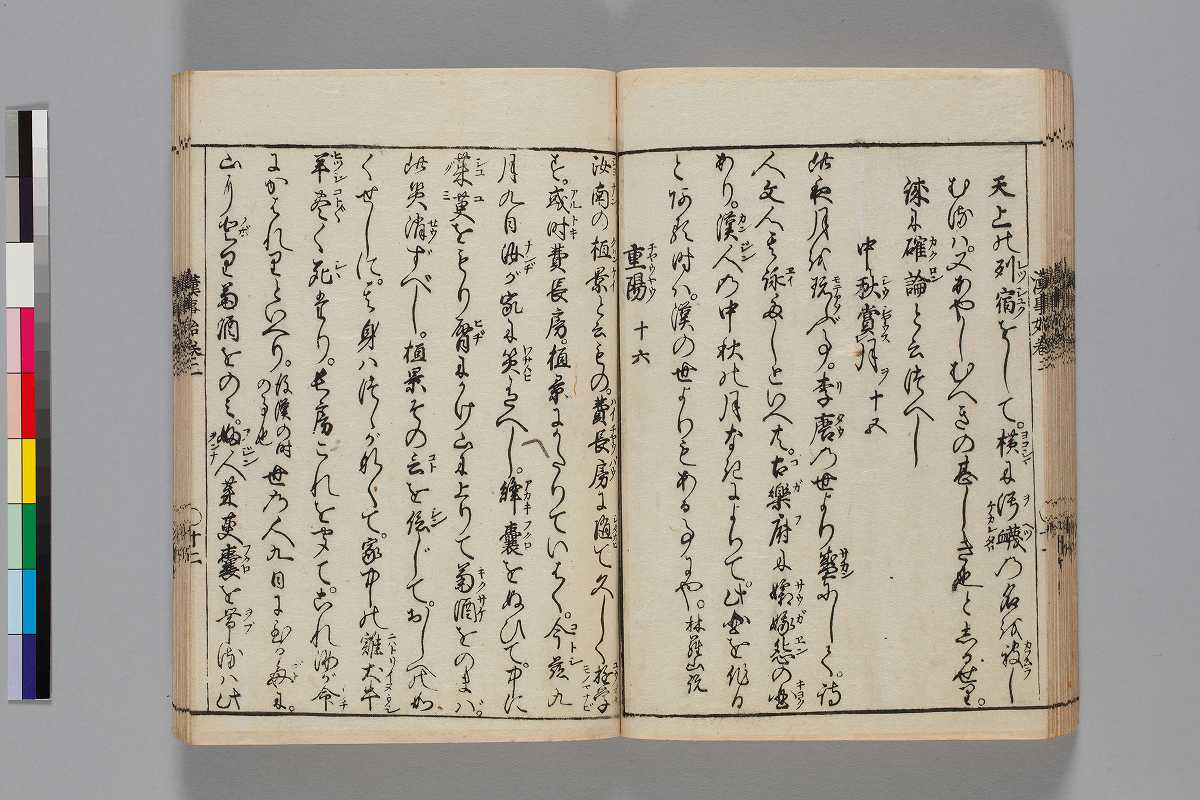 天上の列宿をして。横に汚衊の名を被し
むるハ。又あやしむへきの甚しき也と。
誠に確論と云つへし
中秋賞月 十五
此夜月を玩ぶ事。李唐の世より盛にして。詩
人文人其詠多しといへ共。古樂府に孀娥怨の曲
あり。漢人の中秋の月なきによりて。此曲を作る
と有る時ハ。漢の世よりもある事にや。林羅山説
重陽 十六
汝南の桓景と云もの。費長房に随て久しく遊学
す。或時費長房。桓景にかたりていはく。今茲九
月九日汝が家に災あるへし。絳囊をぬひて。中に
茱萸をもり臂にかけ山に上りて菊酒をのまバ。
此災消ずべし。桓景その言を信じて。
くせしに。其身ハつゝがなくて。家中の雞犬牛
羊尽く死たり。長房これをきゝて。これ汝が命
にかはれりといへり。後漢の時の事也 世の人九日に至る毎に。
山に登り菊酒をのミ。婦人茱萸囊を帯るハ此
漢事始巻二
十二